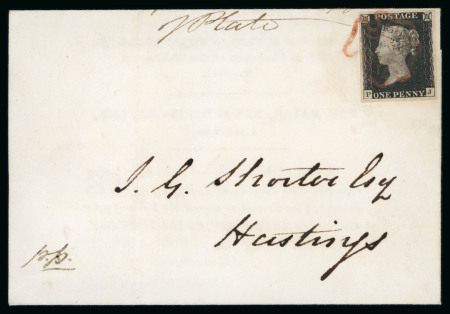 Plate
POSTAGE
ONE PENNY
P J
J. G. Shorter Esq
Hastings
p.p.